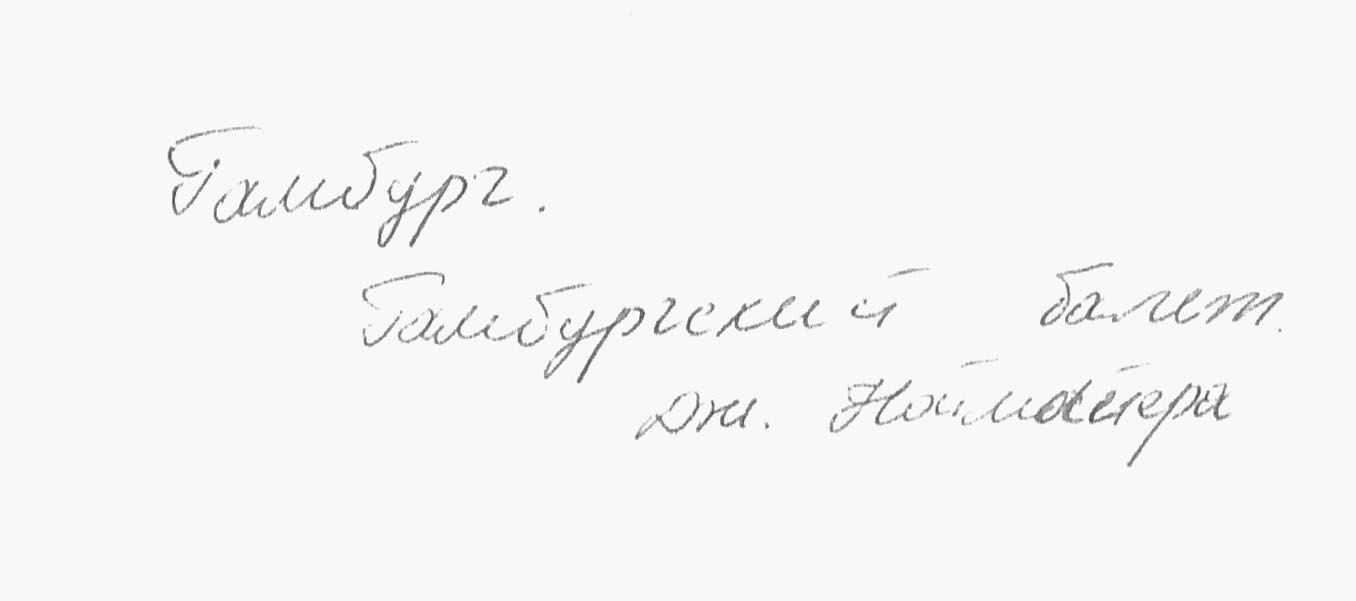 Гамбург.
Гамбургский балет.
Дж. Ноймайера